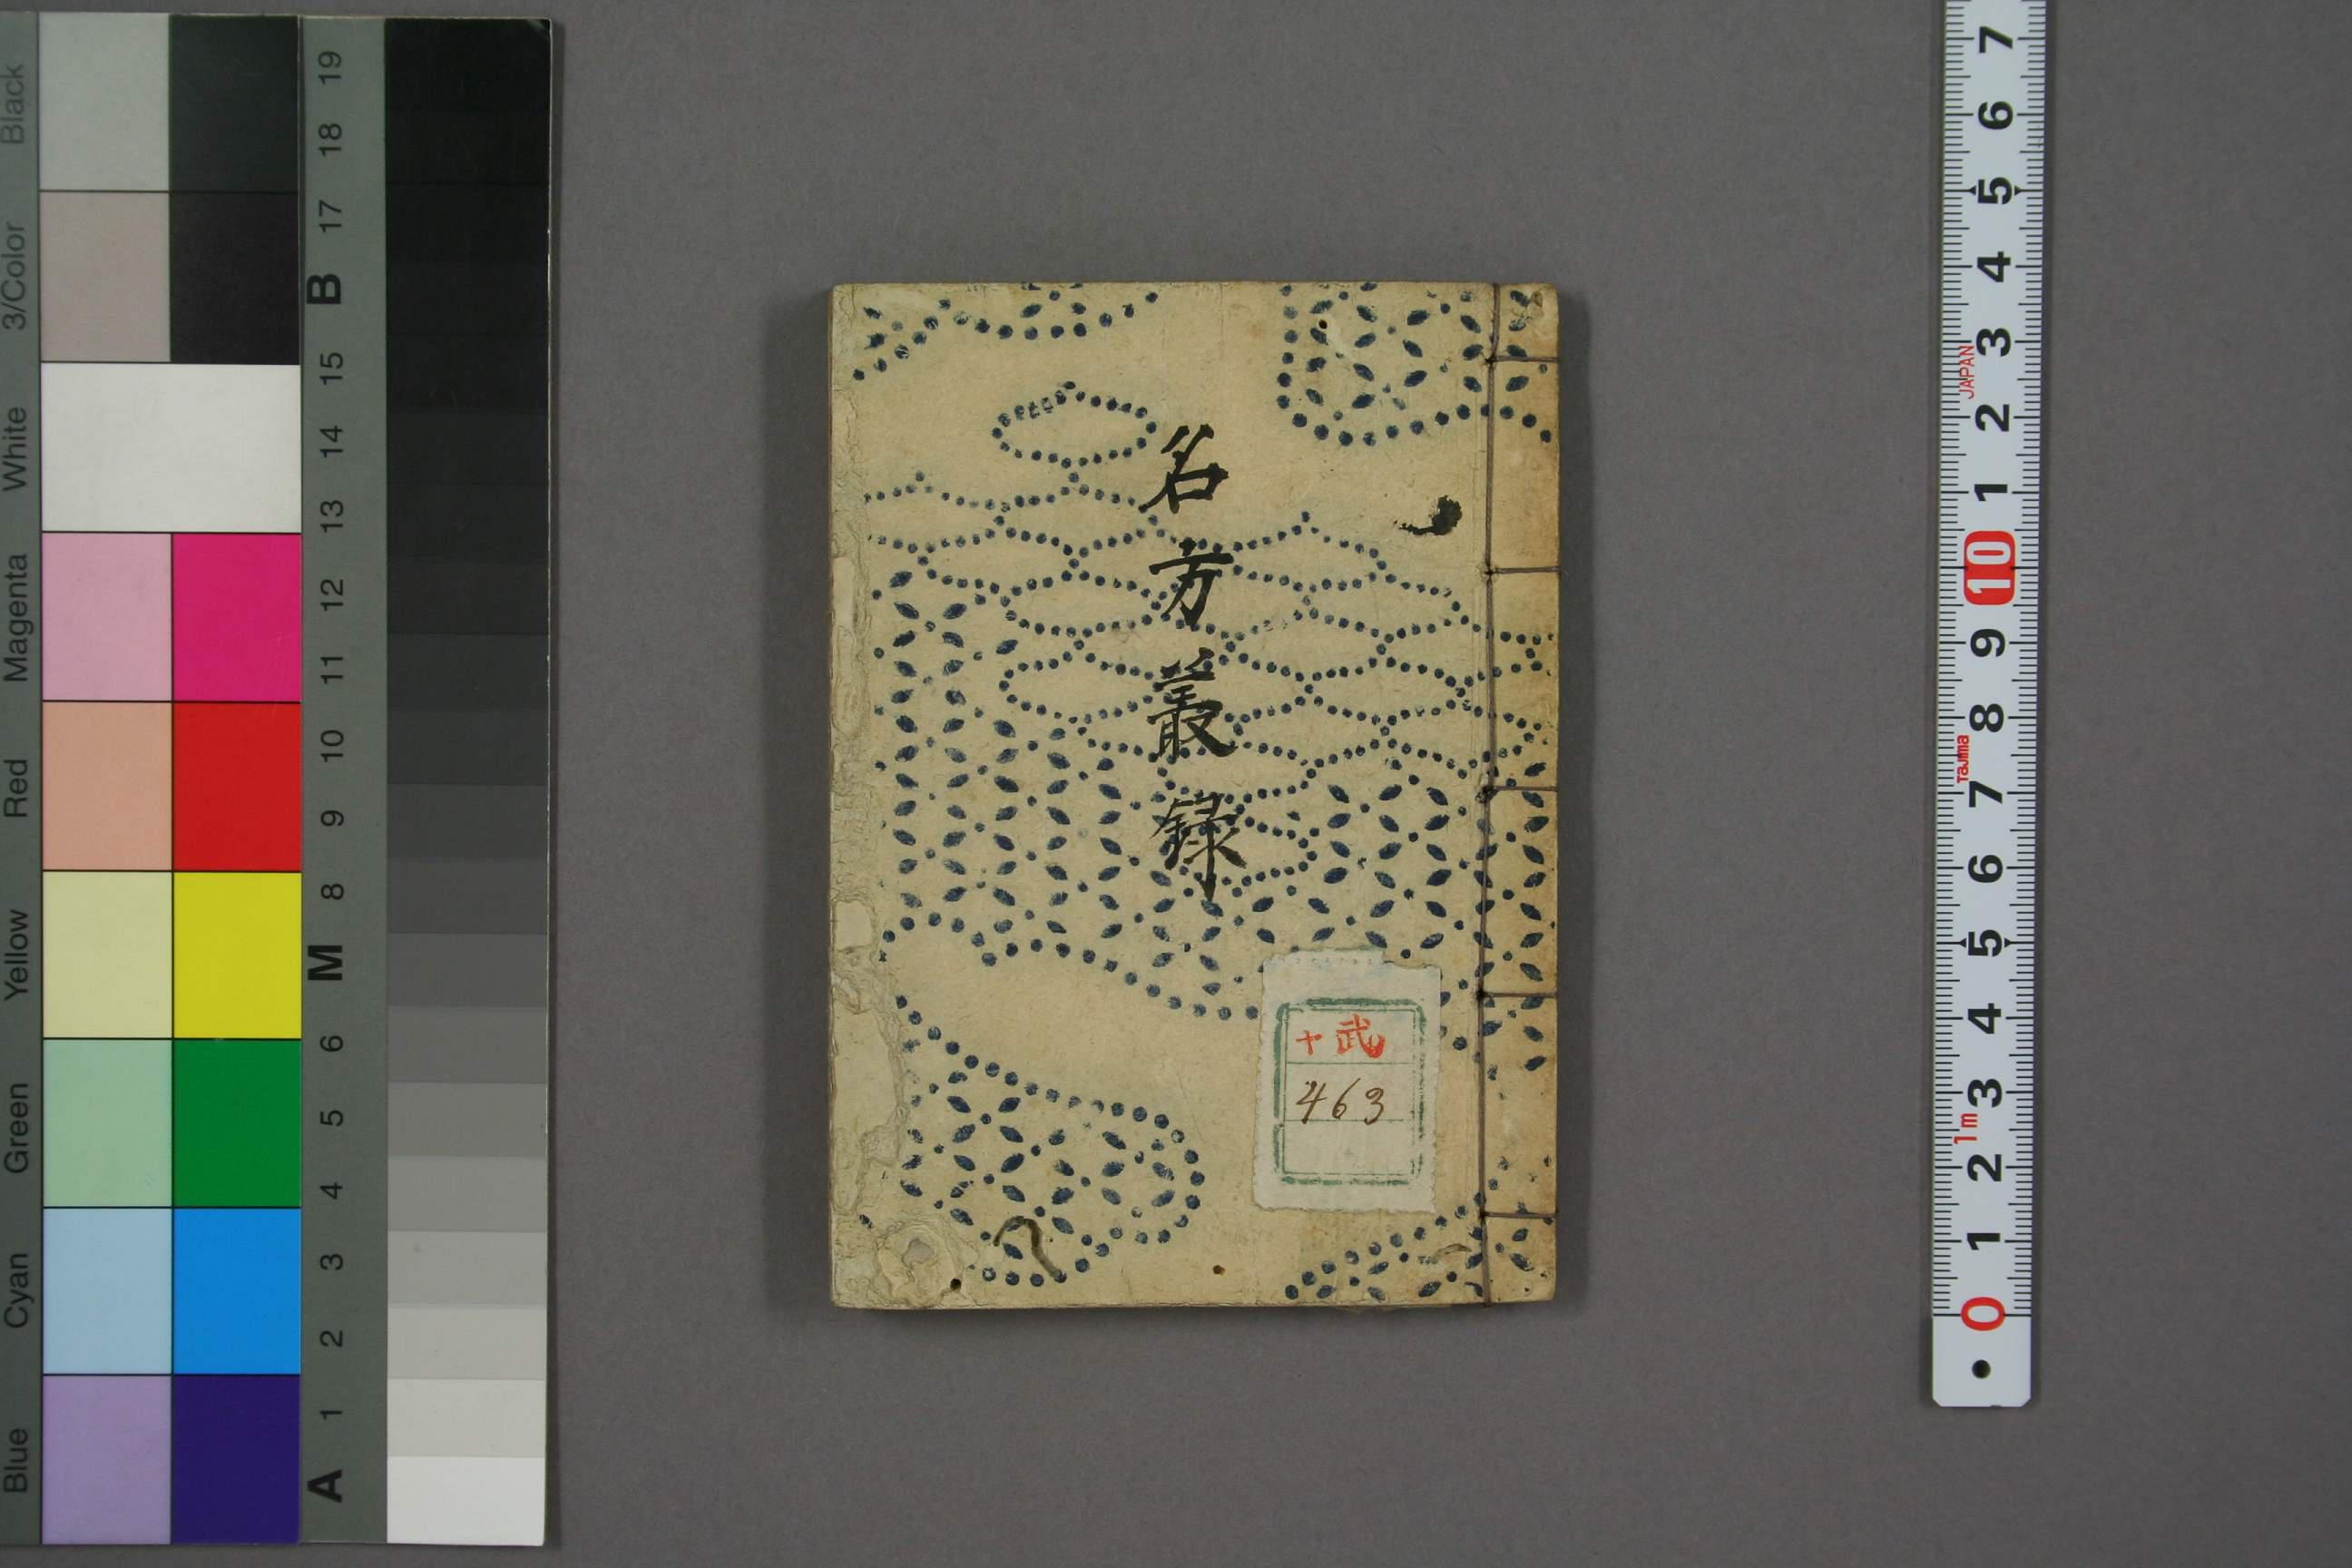 Black
3/Color
White
Magenta
Red
Yellow
Green
Cyan
Blue
19
18
17
B
15
14
13
12
11
10
9
8
M
6
5
4
3
2
1
A
名方叢録
十武
463
7
6
5
4
3
JAPAN
2
1
10
9
8
Tajima
7
6
5
4
3
1m
2
1
0